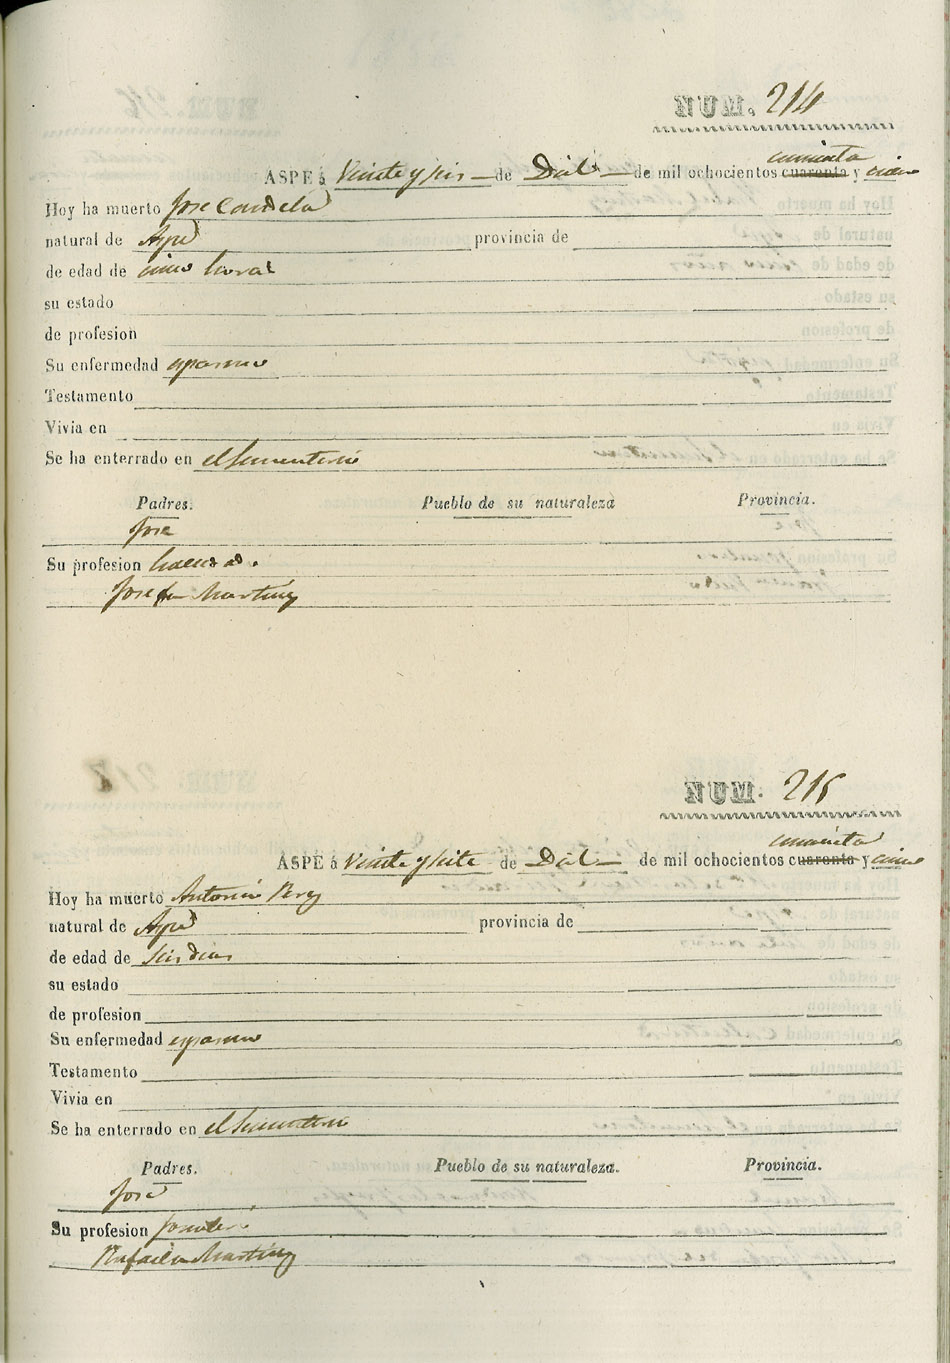 NUM. 214
ASPE á Veinte y seis de Dbre de mil ochocientos cuarenta cincuenta y cinco
Hoy ha muerto Jose Candela
natural de Aspe provincia de
de edad de cinco horas
su estado
de profesion
Su enfermedad espasmo
Testamento
Vivia en
Se ha enterrado en el Sementerio
Padres. Pueblo de su naturaleza Provincia.
Jose
Su profesion
Josefa Martinez
NUM. 215
ASPE á Veinte y siete de Dbre de mil ochocientos cuarenta cincuenta y cinco
Hoy ha muerto Antonio Perez
natural de Aspe provincia de
de edad de Seis dias
su estado
de profesion
Su enfermedad espasmo
Testamento
Vivia en
Se ha enterrado en el Sementerio
Padres. Pueblo de su naturaleza. Provincia.
Jose
Su profesion Jornalero
Rafaela Martinez